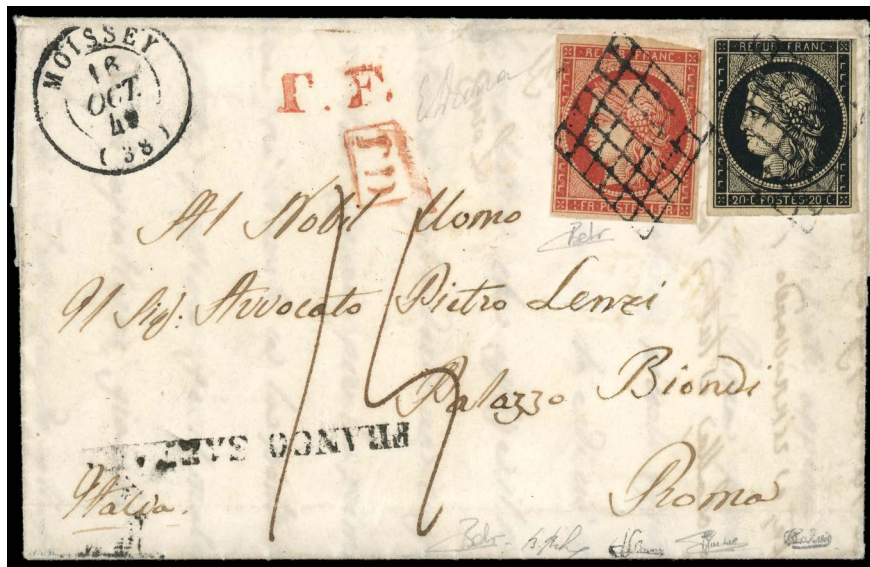 MOISSEY
16
OCT.
49
(38)
P.F.
P.D.
REPUB. FRANC.
1 FR. POSTES 1 FR.
REPUB. FRANC.
20 C. POSTES 20 C.
Al Nobil Uomo
Il Sigr. Avvocato Pietro Lenzi
Palazzo Biondi
FRANCO
Italia.
Roma